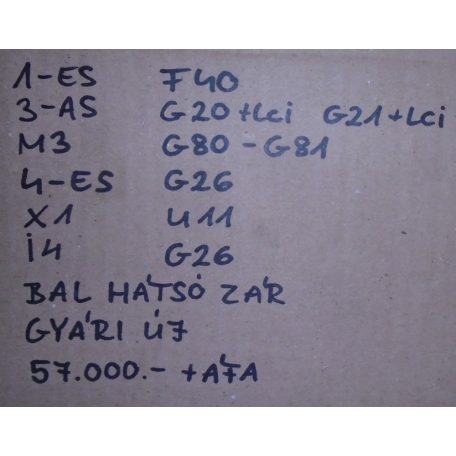 1-ES F40
3-AS G20+LCi G21+LCi
M3 G80-G81
4-ES G26
X1 U11
i4 G26
BAL HÁTSÓ ZÁR
GYÁRI ÚJ
57.000.- +ÁFA